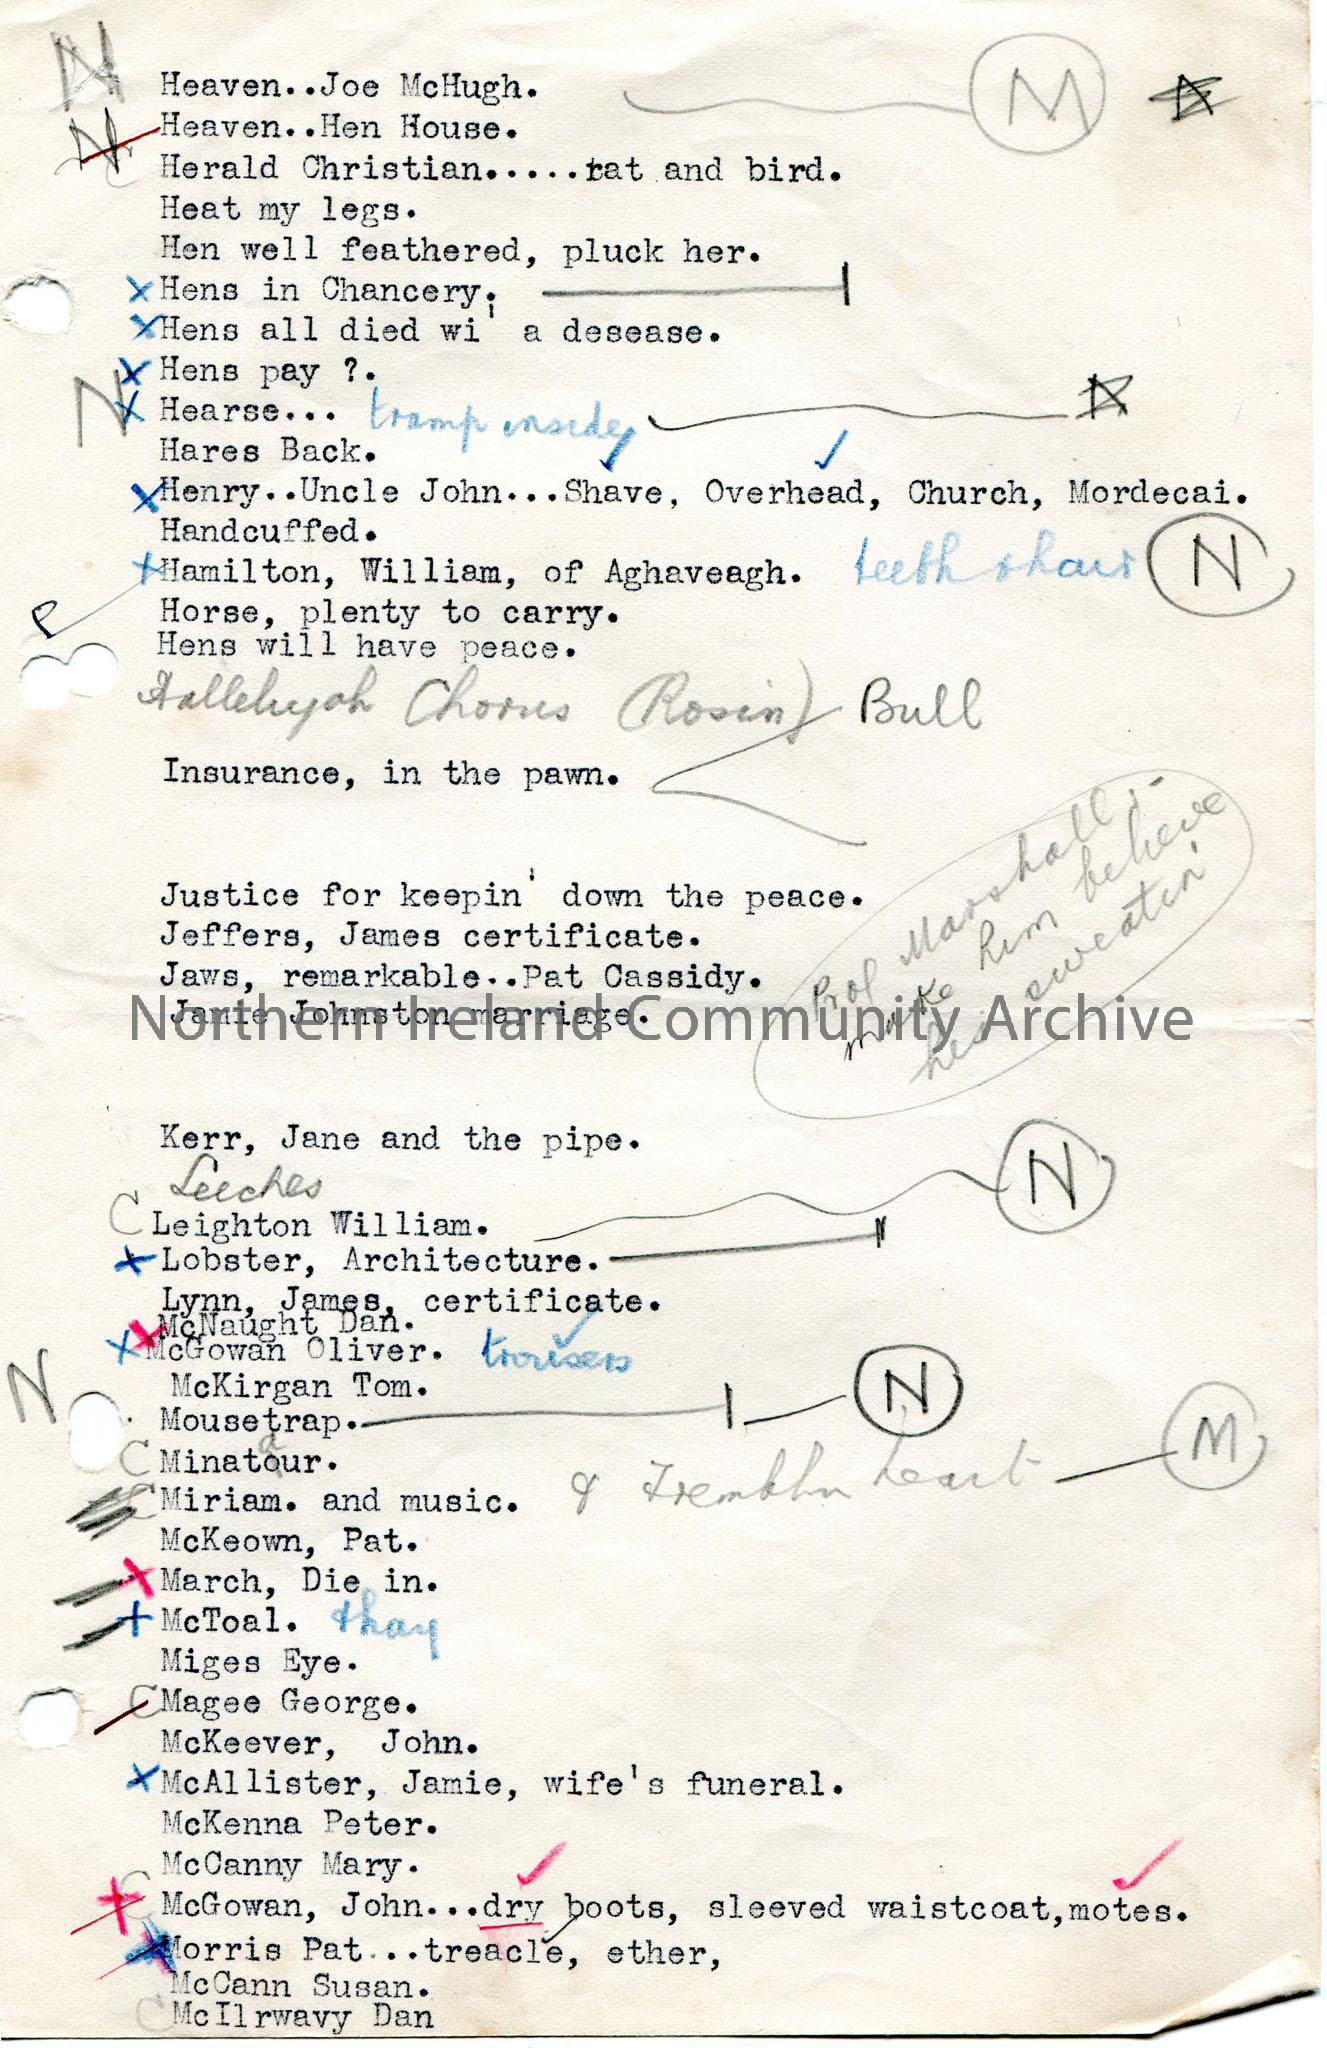 N Heaven..Joe McHugh. M N
N Heaven..Hen House.
C Herald Christian.....rat and bird.
Heat my legs.
Hen well feathered, pluck her.
x Hens in Chancery.
x Hens all died wi' a desease.
x Hens pay ?.
N x Hearse... tramp inside N
Hares Back.
x Henry..Uncle John...Shave, Overhead, Church, Mordecai.
Handcuffed.
x Hamilton, William, of Aghaveagh. teeth & hair N
P Horse, plenty to carry.
Hens will have peace.
Hallelujah Chorus (Rosin) Bull
Insurance, in the pawn.
Prof Marshall :-
make him believe
he's sweatin'
Justice for keepin' down the peace.
Jeffers, James certificate.
Jaws, remarkable..Pat Cassidy.
Jamie Johnston marriage.
Northern Ireland Community Archive
Kerr, Jane and the pipe.
Leeches
C Leighton William. N
x Lobster, Architecture.
Lynn, James, certificate.
x McNaught Dan.
x McGowan Oliver. trousers
McKirgan Tom.
N Mousetrap. N
C Minatour. a
C Miriam. and music. & Tremblin heart M
McKeown, Pat.
x March, Die in.
x McToal. & hay
Miges Eye.
C Magee George.
McKeever, John.
x McAllister, Jamie, wife's funeral.
McKenna Peter.
McCanny Mary.
x C McGowan, John...dry boots, sleeved waistcoat,motes.
x Morris Pat...treacle, ether,
McCann Susan.
C McIlrwavy Dan